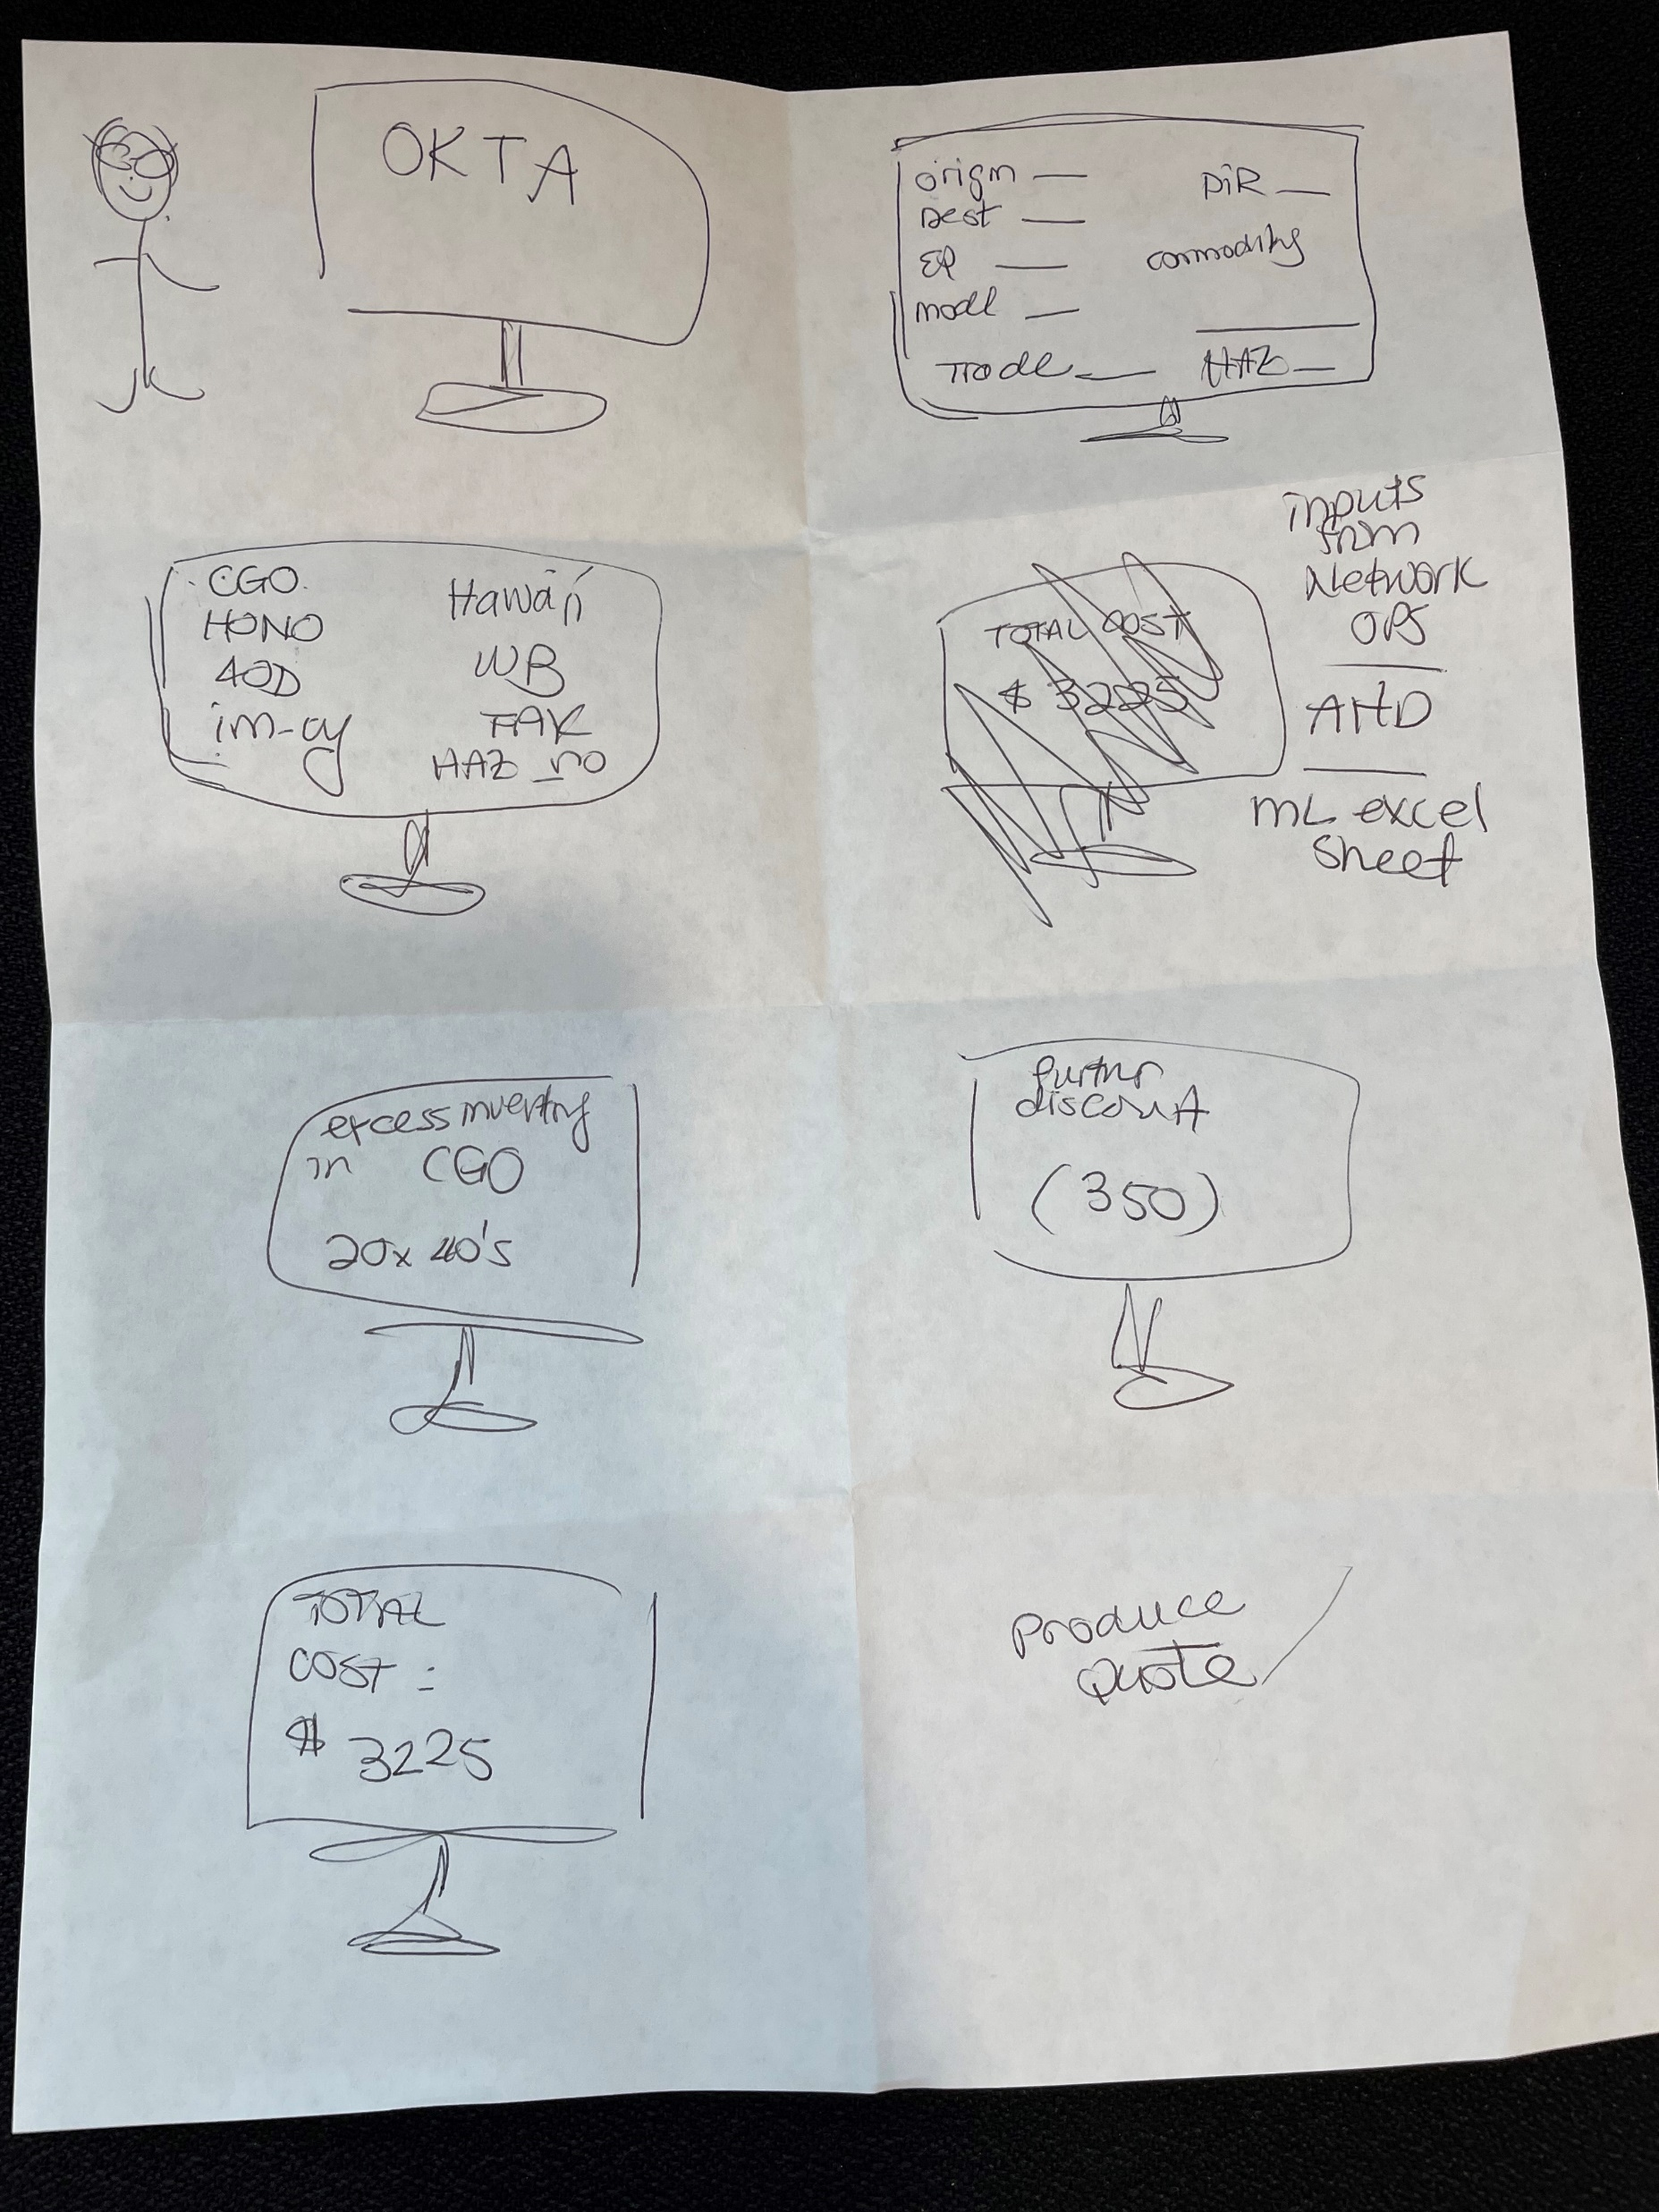 OKTA
origin
Dest
EQ
mode
Trade
DIR
commodity
HAZ
CGO
HONO
40D
im-cy
Hawaii
WB
FAK
HAZ no
TOTAL COST
$ 3225
inputs
from
Network
OPS
AHD
ML excel
sheet
excess inventory
in CGO
20x 40's
further
discount
(350)
TOTAL
COST:
$ 3225
Produce
Quote